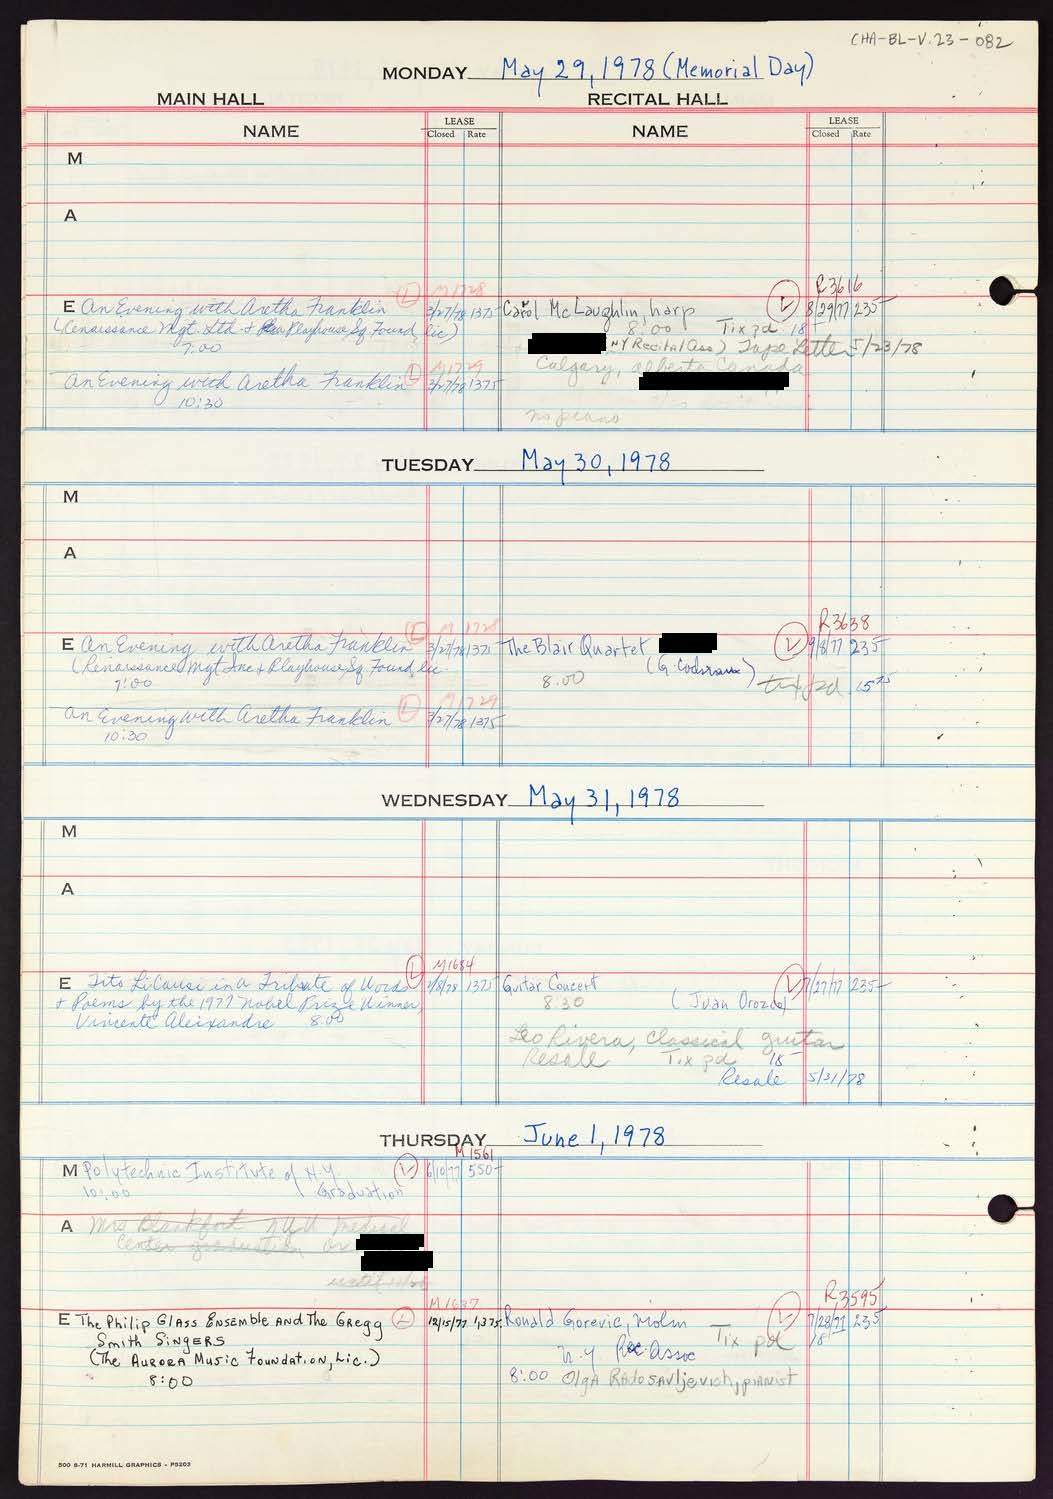 CHA-BL-V.23-082
MONDAY May 29, 1978 (Memorial Day)
MAIN HALL RECITAL HALL
NAME LEASE Closed Rate NAME LEASE Closed Rate
M
A
M1728 R3616
E An Evening with Aretha Franklin L 3/27/78 1375 Carol McLaughlin, harp L 8/29/77 235-
(Renaissance Mgt. Ltd + Playhouse Sq. Found, lic) 8:00 Tix pd 18-
7:00 NY Recital Ass) Tape Letter 5/23/78
M1729 Calgary, Alberta Canada
An Evening with Aretha Franklin L 3/27/78 1375
10:30
no piano
TUESDAY May 30, 1978
M
A
M1728 R3638
E An Evening with Aretha Franklin L 3/27/78 1375 The Blair Quartet L 9/8/77 235-
(Renaissance Mgt Inc + Playhouse Sq. Found, lic
7:00 8:00 tix pd 15
M1729
An Evening with Aretha Franklin L 3/27/78 1375
10:30
WEDNESDAY May 31, 1978
M
A
M1684
E Tito LiCausi in a Tribute of Words L 1375 Guitar Concert L 7/27/77 235-
+ Poems by the 1977 Nobel Prize Winner, 8:30 (Juan Orozco)
Vincente Aleixandre 8:00
Leo Rivera, classical guitar
Resale Tix pd 18-
Resale 5/31/78
THURSDAY June 1, 1978
M1561
M Polytechnic Institute of N.Y. L 6/10/77 550-
10:00 Graduation
A Mrs Blankfort NYU Medical
Center graduation or
M1637 R3595
E The Philip Glass Ensemble and The Gregg L 12/15/77 1,375. Ronald Gorevic, violin L 7/28/77 235-
Smith Singers Tix pd 18-
(The Aurora Music Foundation, lic.) N.Y Rec. Assoc
8:00 8:00 Olga Radosavljevich, pianist
500 8-71 HARMILL GRAPHICS - P5203